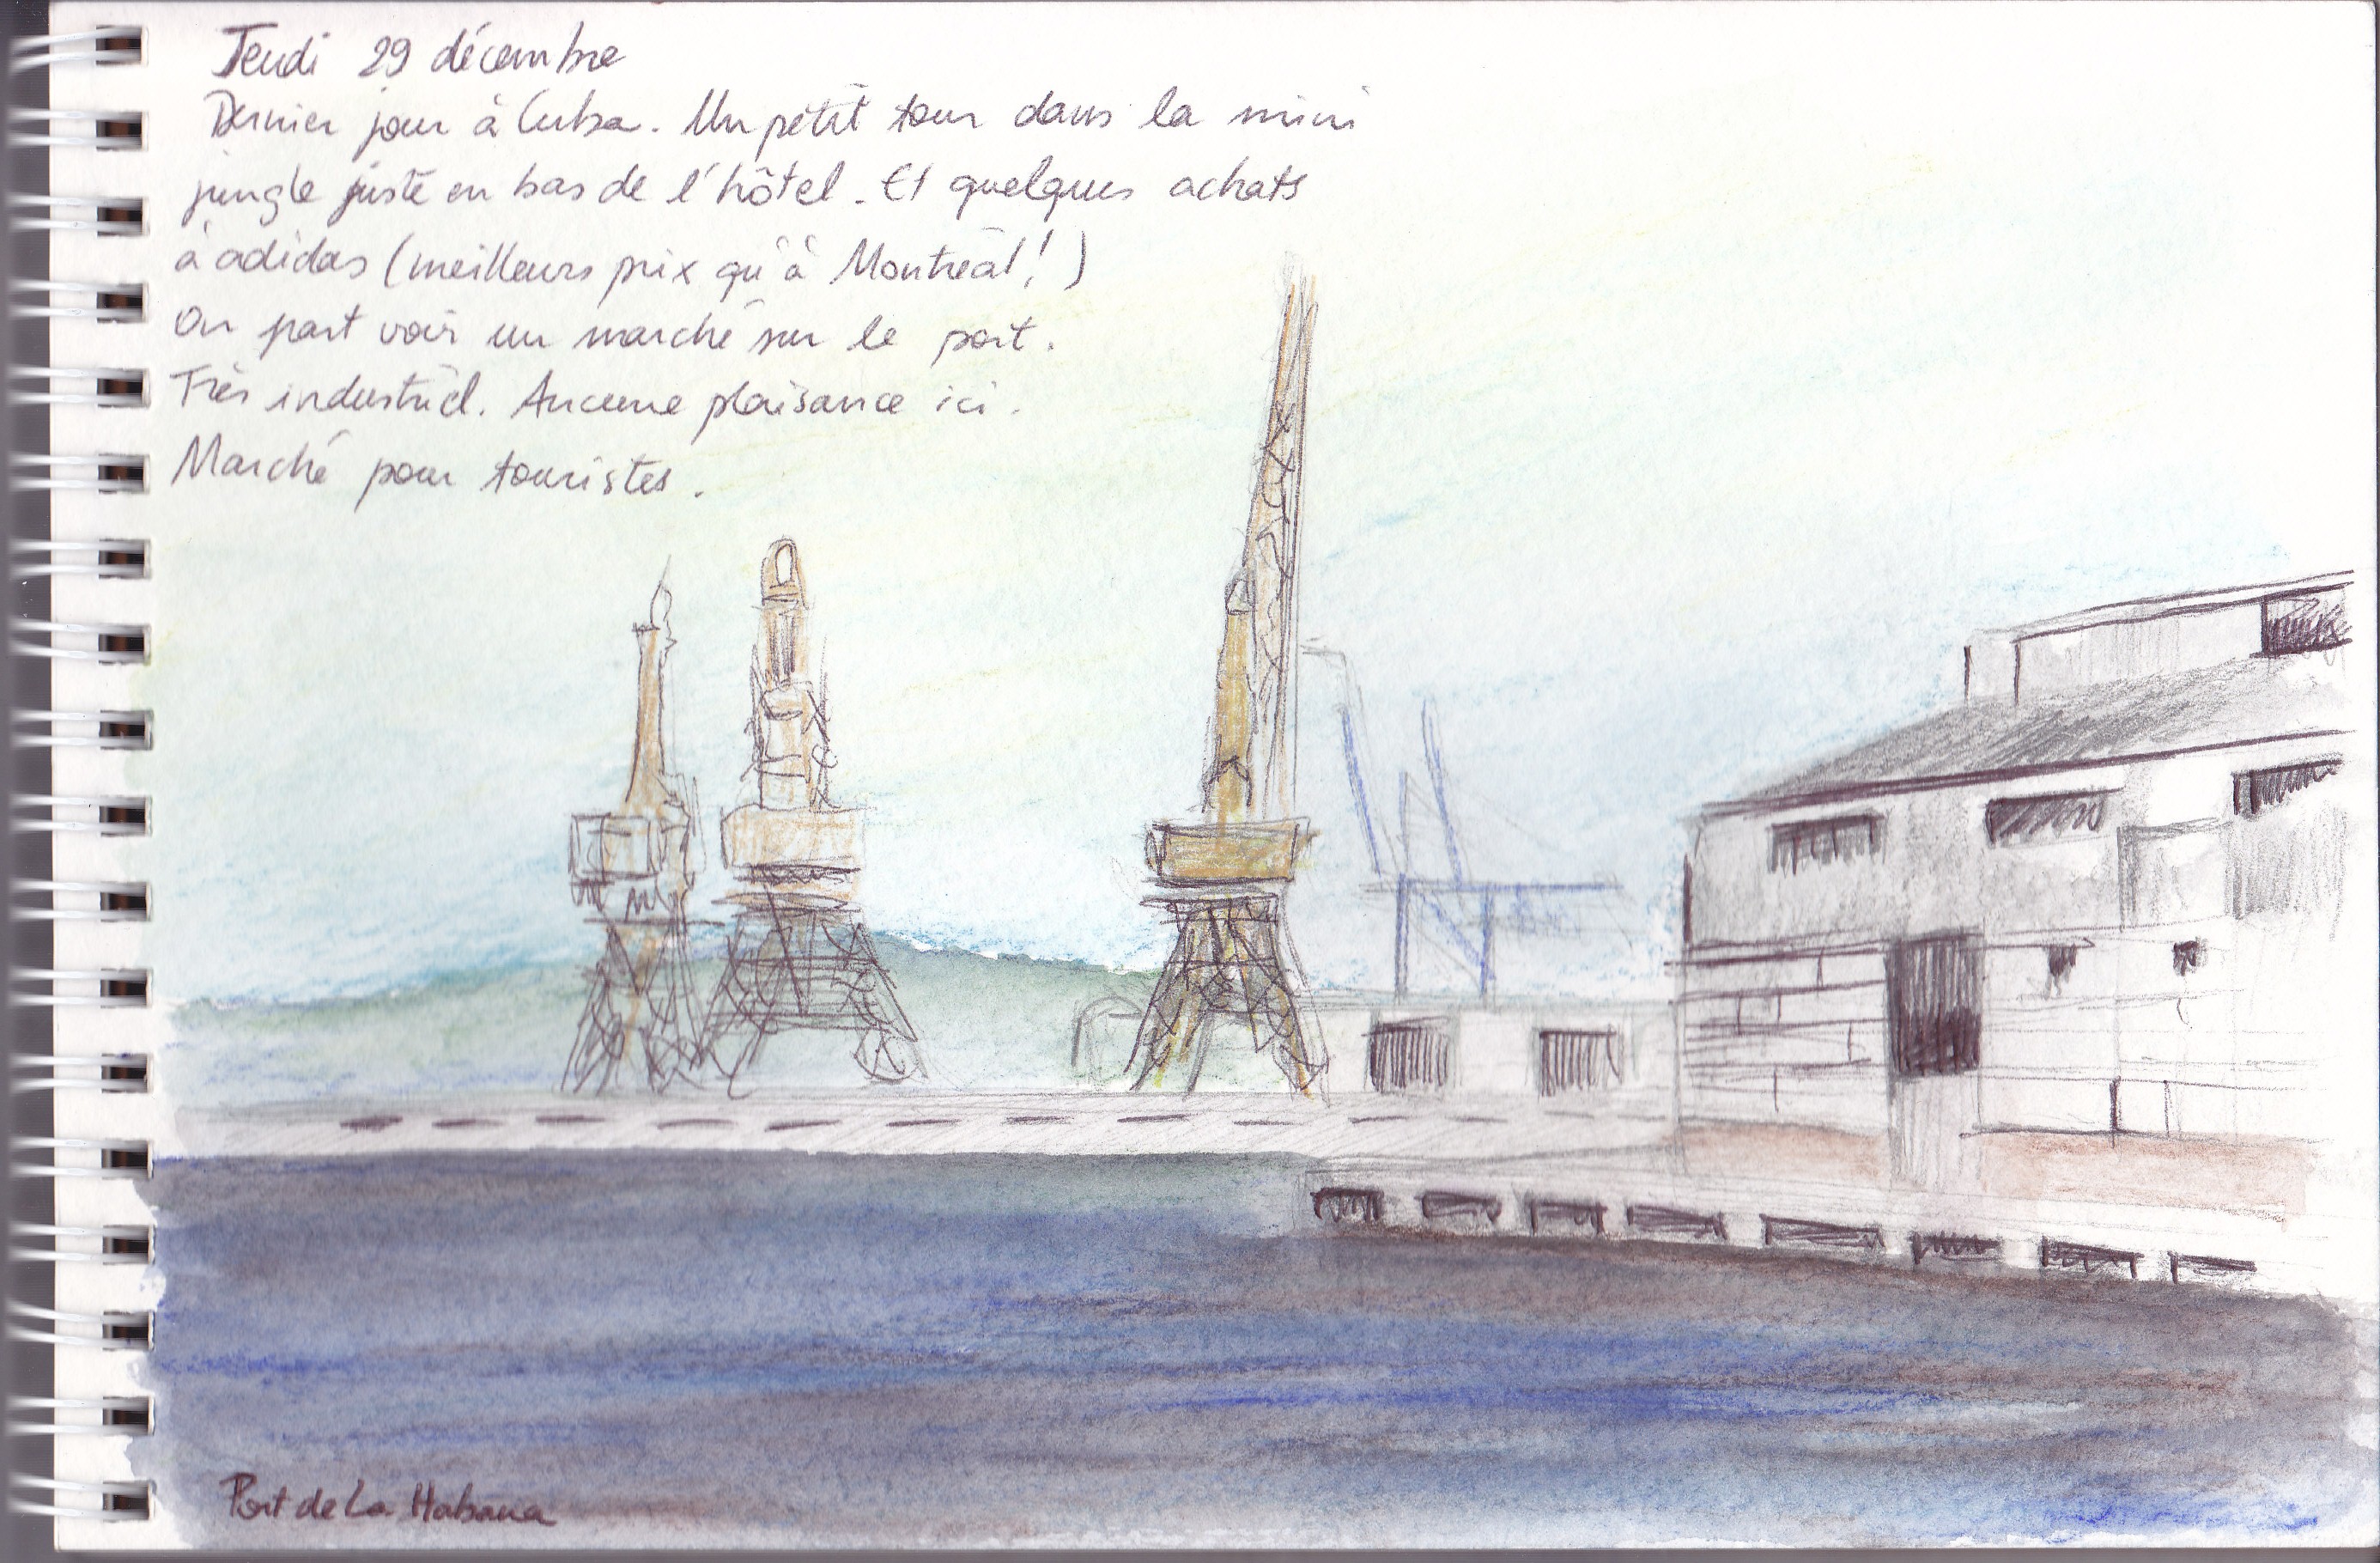 Jeudi 29 décembre
Dernier jour à Cuba. Un petit tour dans la mini
jungle juste en bas de l'hôtel. Et quelques achats
à adidas (meilleurs prix qu'à Montréal!)
On part voir un marché sur le port.
Très industriel. Aucune plaisance ici.
Marché pour touristes.
Port de La Habana